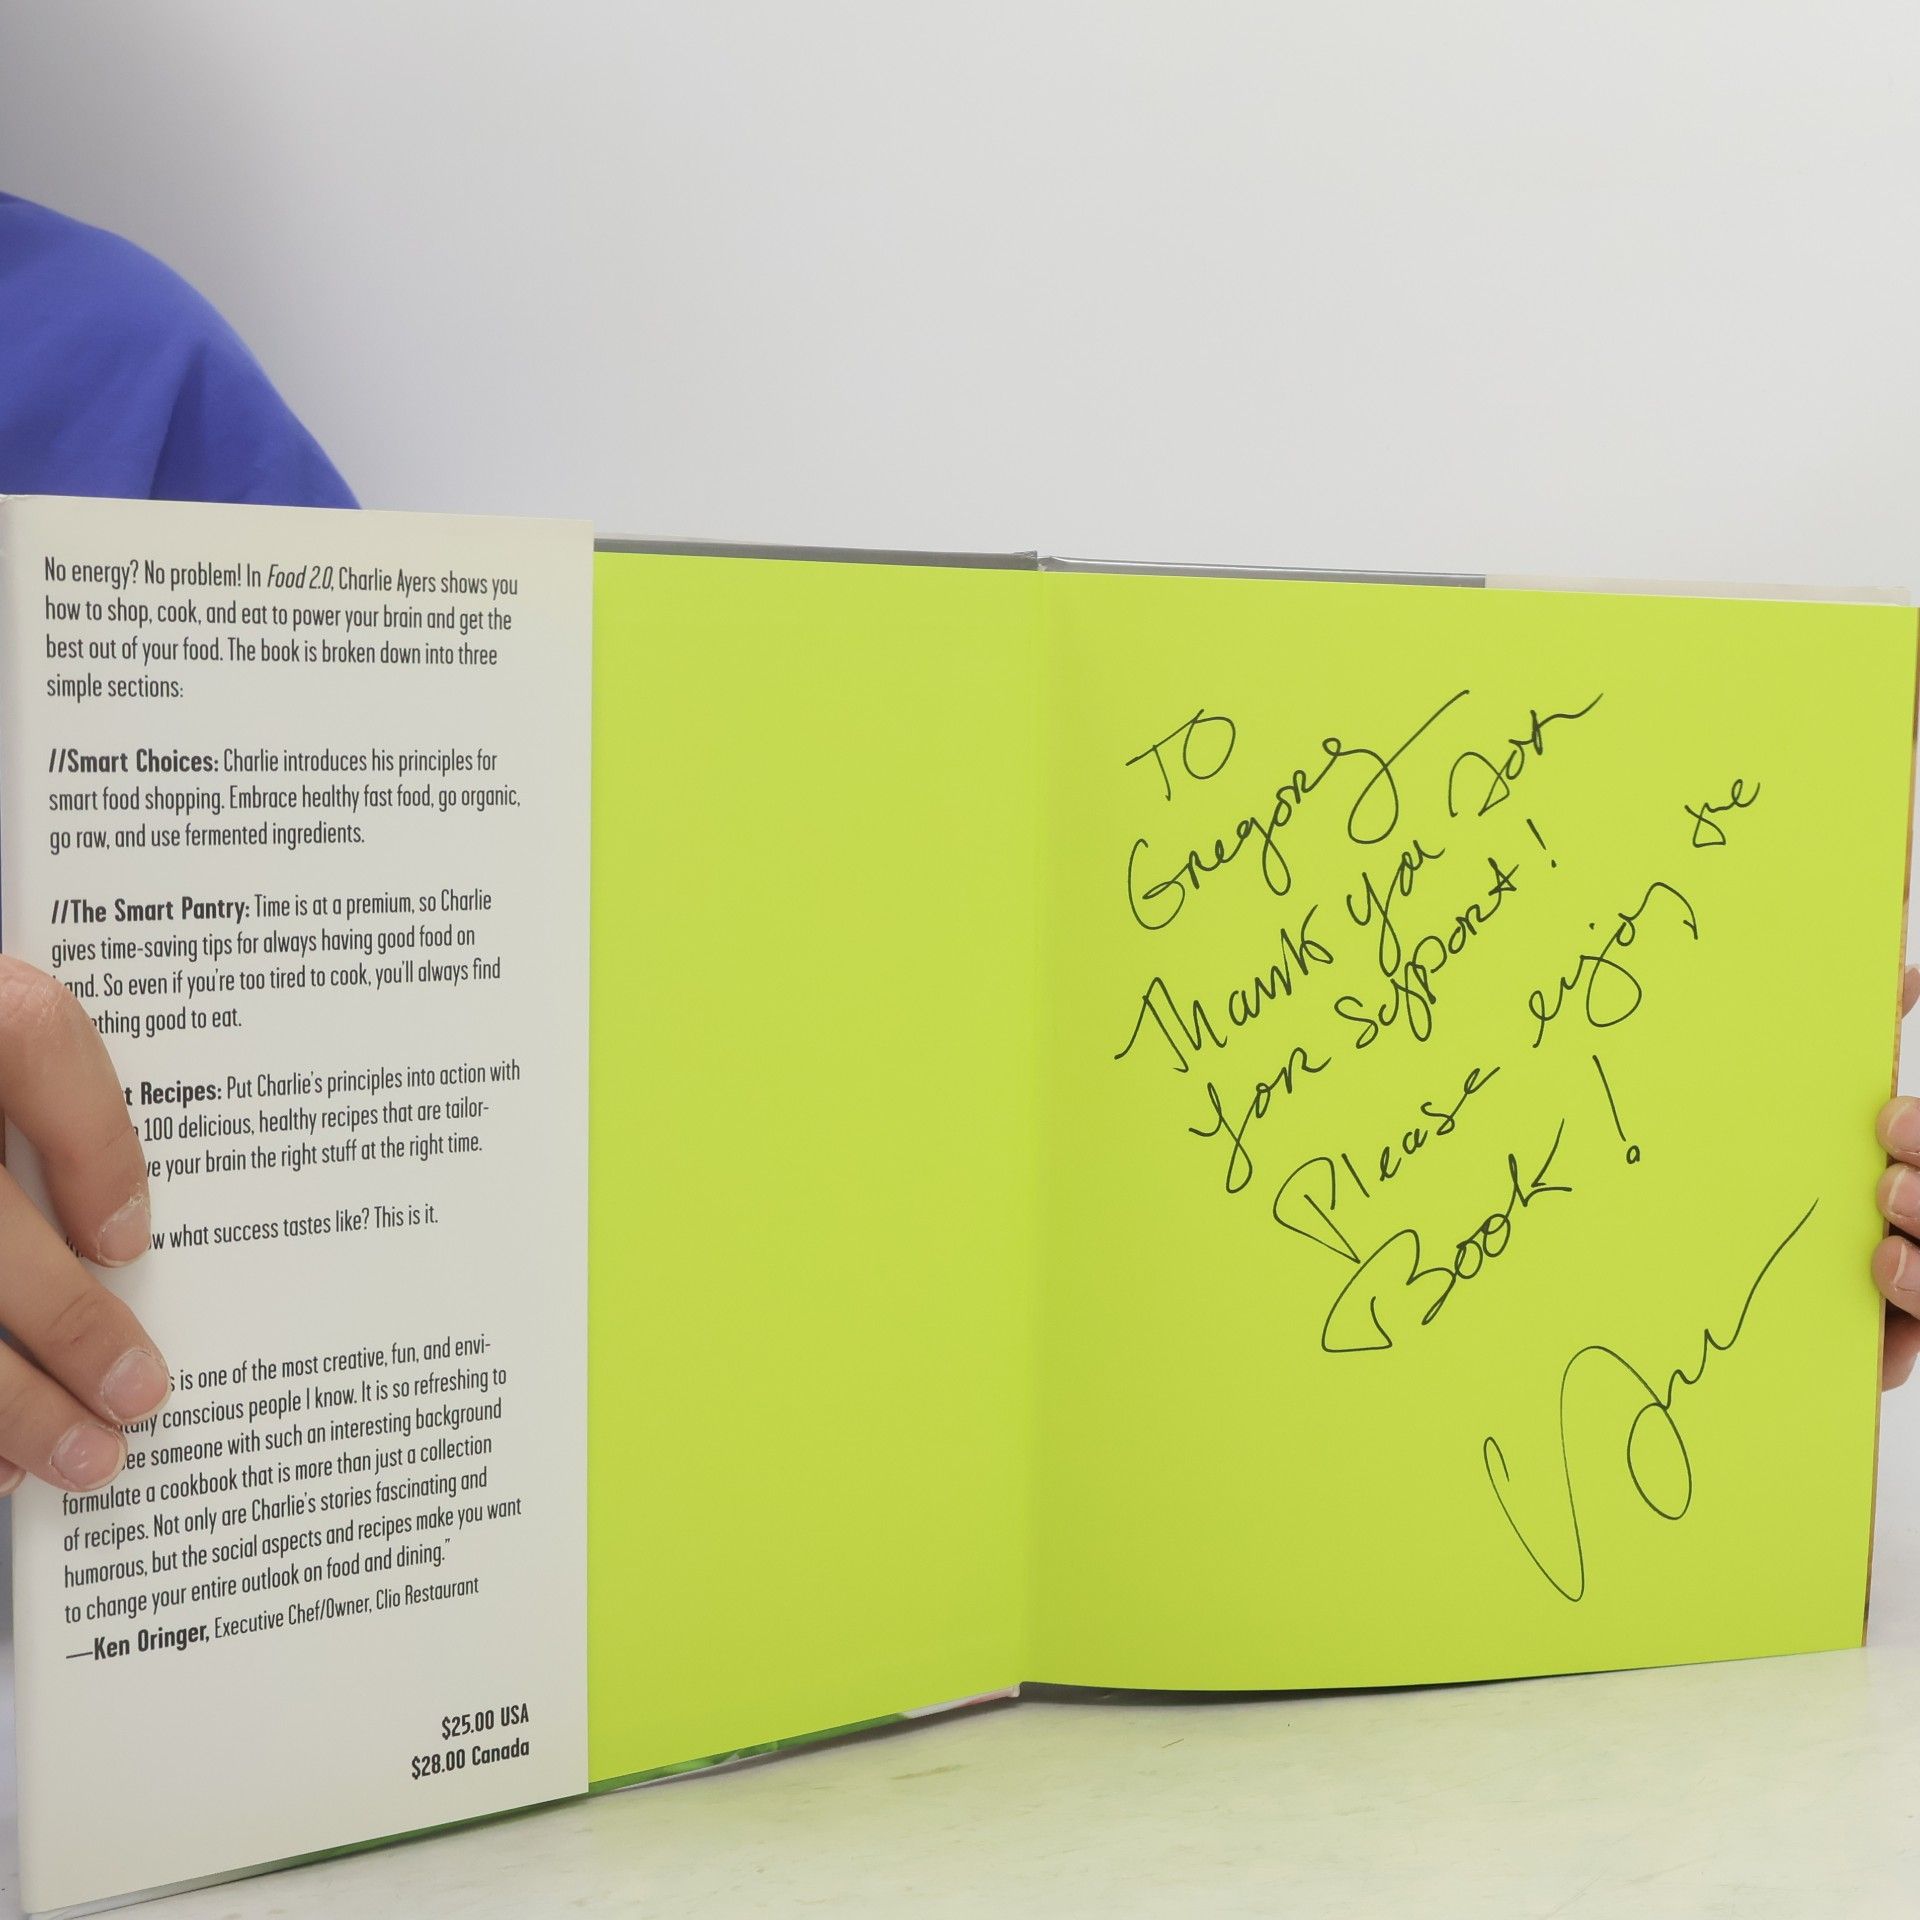 No energy? No problem! In Food 2.0, Charlie Ayers shows you
how to shop, cook, and eat to power your brain and get the
best out of your food. The book is broken down into three
simple sections:
//Smart Choices: Charlie introduces his principles for
smart food shopping. Embrace healthy fast food, go organic,
go raw, and use fermented ingredients.
//The Smart Pantry: Time is at a premium, so Charlie
gives time-saving tips for always having good food on
and. So even if you're too tired to cook, you'll always find
thing good to eat.
t Recipes: Put Charlie's principles into action with
100 delicious, healthy recipes that are tailor-
ve your brain the right stuff at the right time.
w what success tastes like? This is it.
s is one of the most creative, fun, and envi-
tally conscious people I know. It is so refreshing to
ee someone with such an interesting background
formulate a cookbook that is more than just a collection
of recipes. Not only are Charlie's stories fascinating and
humorous, but the social aspects and recipes make you want
to change your entire outlook on food and dining."
—Ken Oringer, Executive Chef/Owner, Clio Restaurant
$25.00 USA
$28.00 Canada
TO
Gregory
Thank you for
your Support!
Please enjoy the
Book!